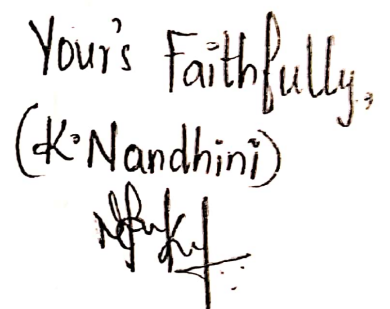 Your's Faithfully,
(K. Nandhini)